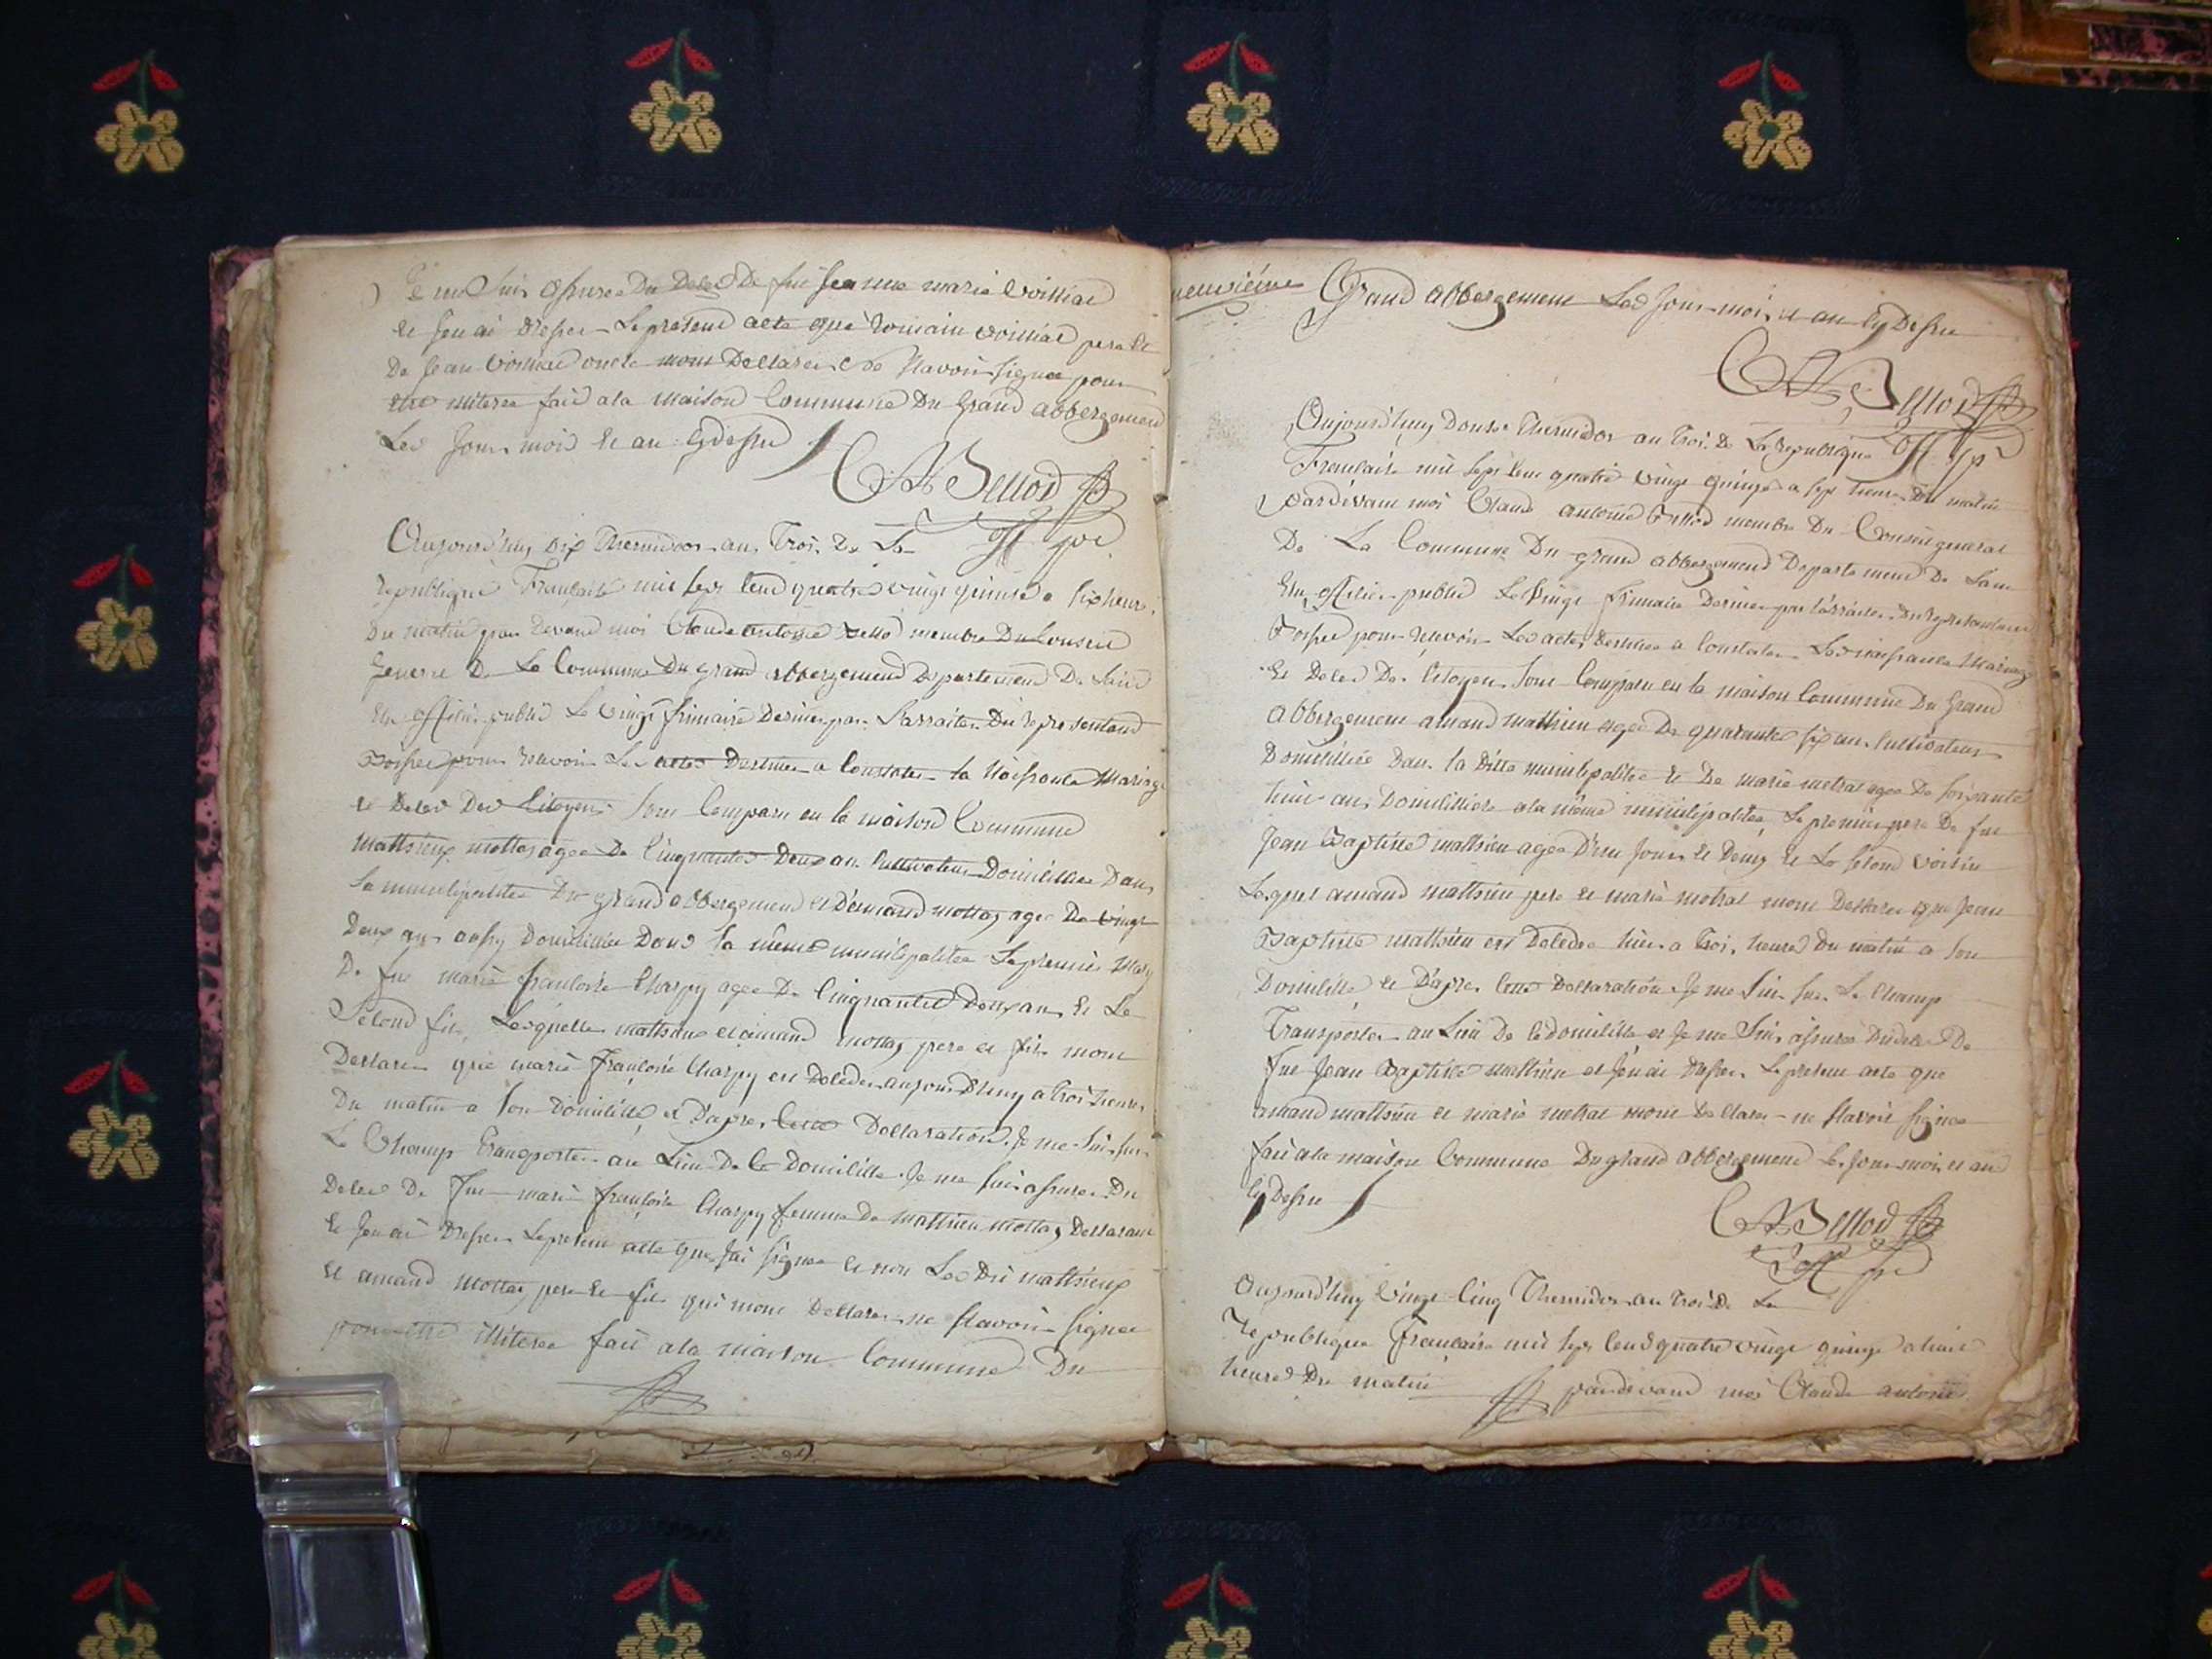 Je me suis assuree Du Deces De fue Jeanne marie Voilliad
Et Jen ai Dressee Le presend acte que romain voilliad pere Et
De Jean Voilliad oncle mont Dellaree De Navoir signee pour
etre illiteree faid ala maison Commune Du Grand abbergemend
Les Jour mois Et an cy dessu
CA Bellod
off. pc
Aujourd'huy Dix Thermidor an Trois De La
republique Francaise mil sept Cend quatre vingt quinse a six heure
Du matin par devand moi Claude antoine Bellod membre Du Conseil
general De La Commune Du grand abbergemend Departemend De Laind
Elu officier public Le vingt frimaire Dernier par Larraite Du representand
Boisset pour recevoir Les actes Destinee a Constater la Naissance Mariage
et Deces Des Citoyens sont Comparu en la maison Commune
Matthieux mottaz agee De Cinquantes Deux an Cultivateur Domicilliee Dans
La municipalitee Du grand abbergemend et Damand mottaz agee De vingt
Deux ans aussy Domicilliee Dans la meme municipalitee Le premier Mary
De fue marie francoise Charpy agee De Cinquantes Deux ans Et Le
Second fils, Lesquelle matthieux et amand mottaz pere et fils mont
Dellaree que marie francoise Charpy est Decedee aujourd'huy a trois heures
Du matin a son Domicille et D'apres Cette Dellaration Je me suis sur
Le Champ transportee au Lieu De Ce Domicille Je me suis assuree Du
Deces De fue marie francoise Charpy femme De matthieu mottaz Dellarant
Et Jen ai Dressee Le presend acte que Jai signee et non Les Dit matthieux
Et amand mottaz pere Et fils qui mont Dellaree ne slavoir signee
pour etre illiteree faid ala maison Commune Du
neuvieme
Grand abbergemend Les Jour mois et an Cy Dessu
CA Bellod
off. pc
Aujourd'huy Douse Thermidor an trois De La republique
Francaise mil sept Cent quatre vingt quinze a sept heures Du matin
pardevant moi Claude antoine Bellod membre Du Conseil general
De La Commune Du grand abbergemend Departemend De Lain
Elu officier public Le vingt frimaire Dernier par Larraitee Du representand
Boisset pour recevoir Les actes Destinee a Constater Les naissance Mariage
Et Deces Des Citoyens sont Comparu en la maison Commune Du Grand
abbergement amand matthieu agee De quarantes six ans Cultivateur
Domicilliee Dans la Ditte municipalitee Et De marie metral agee De soixante
huit ans Domicilliee ala meme municipalitee, Le premier pere De fue
Jean Baptiste matthieu agee D'un Jour Et Demy Et La second voisine
Lesquel amand matthieu pere et marie metral mont Dellaree que Jean
Baptiste matthieu est Decedee hier a trois heures Du matin a son
Domicille Et D'apres Cette Dellaration Je me suis sur Le Champ
Transportee au Lieu De Ce Domicille et Je me suis assuree Du deces De
fue Jean Baptiste matthieu et Jen ai Dressee Le presend acte que
amand matthieu et marie metral mont Dellaree ne slavoir signee
faid ala maison Commune Du grand abbergemend Les Jour mois et an
Cy Dessu
CA Bellod
off. pc
Aujourd'huy vingt Cinq Thermidor an trois De La
republique Francaise mil sept Cend quatre vingt quinze a huit
heures Du matin pardevand moi Claude antoine